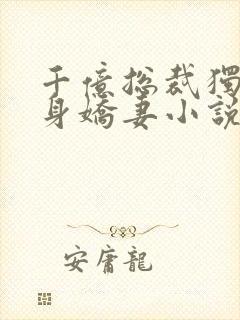 千億總裁獨
身嬌妻小說
安庸龍